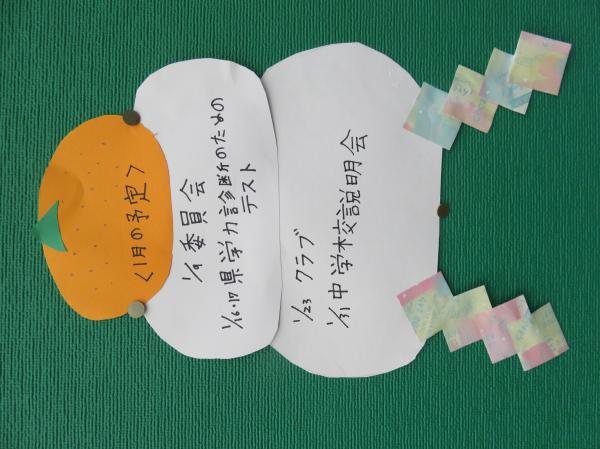 <1月の予定>
1/9 委員会
1/16・17 県学力診断のための
テスト
1/23 クラブ
1/31 中学校説明会